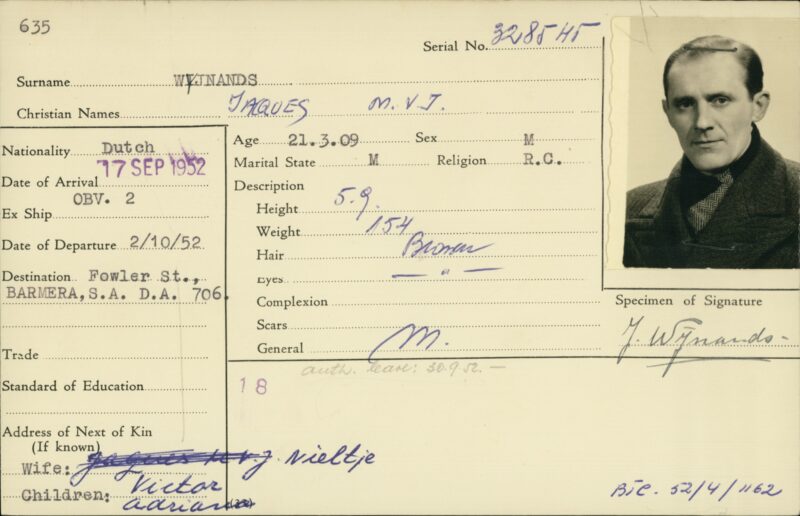 635
Serial No. 3285 45
Surname WIJNANDS
Christian Names JAQUES M.V.J.
Nationality Dutch
Date of Arrival 17 SEP 1952
Ex Ship OBV. 2
Date of Departure 2/10/52
Destination Fowler St.,
BARMERA, S.A. D.A. 706.
Trade
Standard of Education
Address of Next of Kin
(If known)
Wife: Jaques M.V.J. Nieltje
Children: Victor
Adriana
Age 21.3.09 Sex M
Marital State M Religion R.C.
Description
Height 5.9.
Weight 154
Hair Brown
Eyes — " —
Complexion
Scars
General M.
auth. leave: 30.9.52. —
18
Specimen of Signature
J. Wijnands-
BTC. 52/4/1162